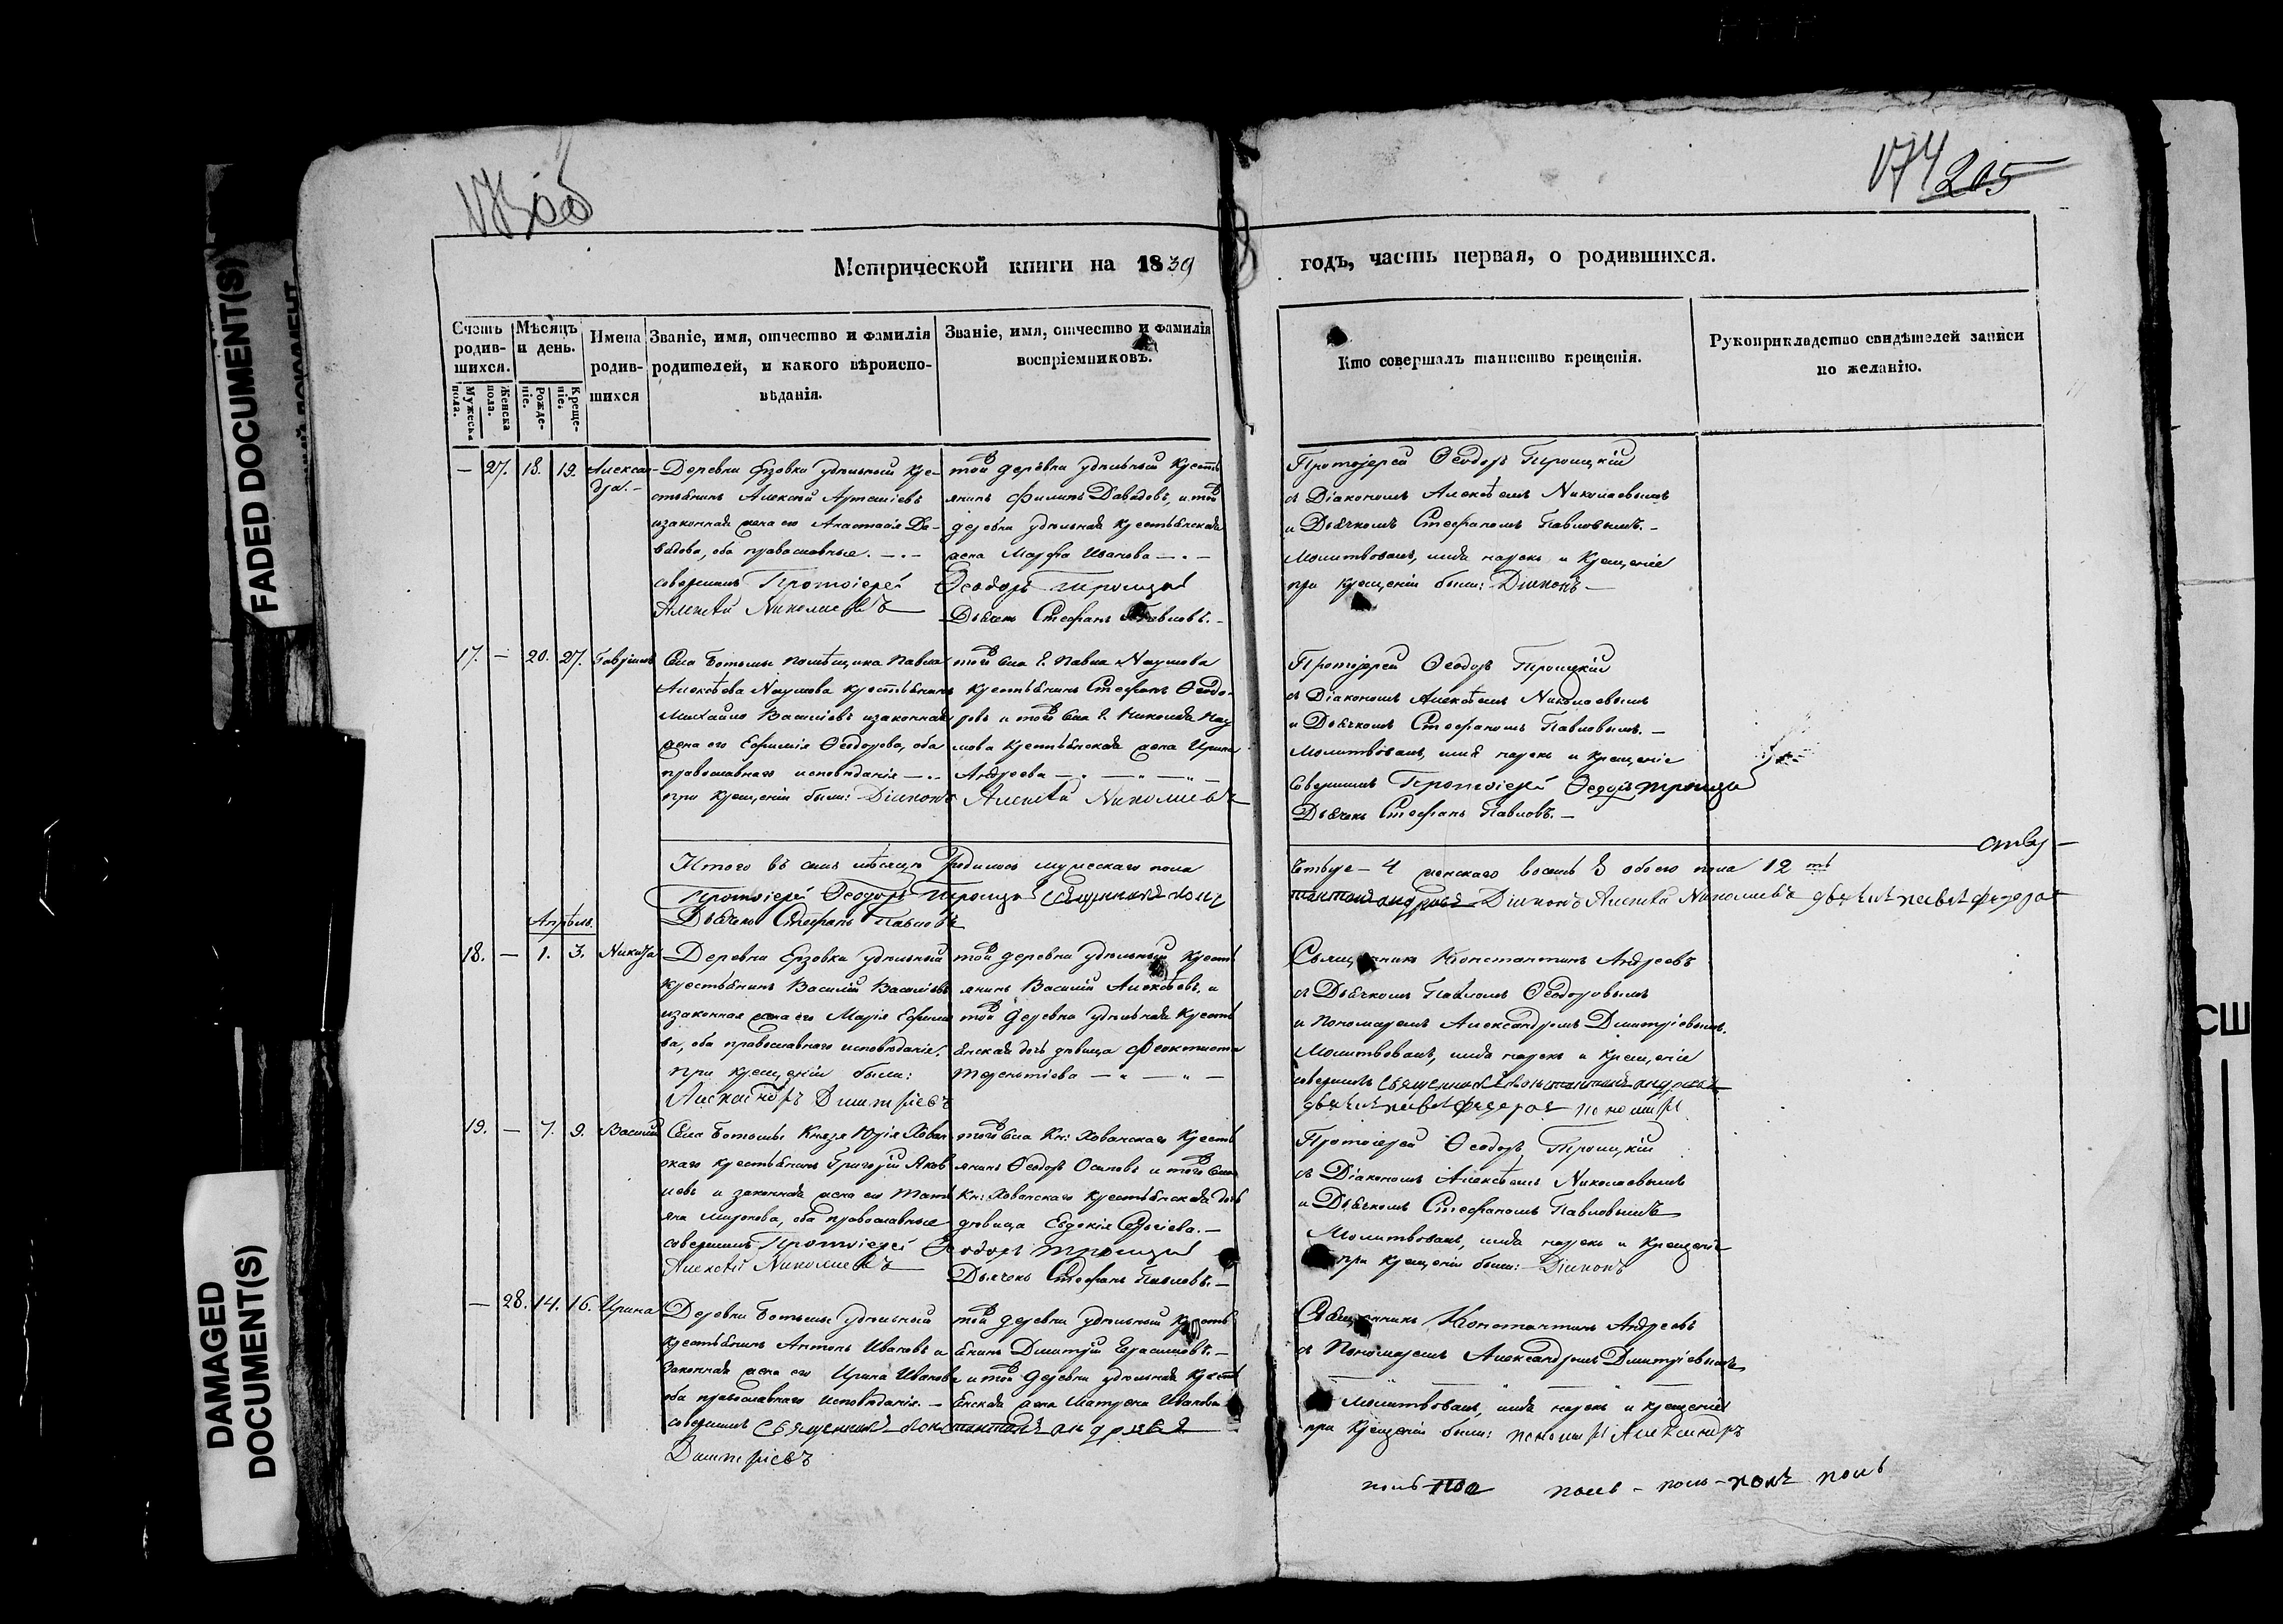 174 205
Метрической книги на 1839 годъ, часть первая, о родившихся.
Счетъ родив-шихся.
Мужеска пола.
Женска пола.
Мѣсяцъ и день.
Рожде-ніе.
Креще-ніе.
Имена родив-шихся
Званіе, имя, отчество и фамилія
родителей, и какого вѣроиспо-
вѣданія.
Званіе, имя, отчество и фамилія
воспріемниковъ.
Кто совершалъ таинство крещенія.
Рукоприкладство свидѣтелей записи
по желанію.
— 27. 18. 19. Алексан-
дра.
Деревни Ерзовки удѣльный кре-
стьянинъ Алексѣй Артеміевъ
и законная жена его Анастасія Да-
видова, оба православные. —.—
совершилъ Протоіерей Ѳеодоръ Троицкій
Алексѣй Николаевъ
Дьячекъ Стефанъ Павловъ. —
той деревни удѣльный кресть
янинъ Филипъ Давидовъ, и той
деревни удѣльная крестьянская
жена Марфа Иванова —.—
Протоіерей Ѳеодоръ Троицкій
съ Діакономъ Алексѣемъ Николаевымъ
и Дьячкомъ Стефаномъ Павловымъ. —
Молитвовалъ, имя нарекъ и крещеніе
при крещеніи были: Діаконъ —
17. — 20. 27. Гавріилъ
Села Ботьмы помѣщика Павла
Алексѣева Наумова крестьянинъ
Михайло Васильевъ и законная
жена его Ефимія Ѳеодорова, оба
православнаго исповѣданія —.—
при крещеніи были: Діаконъ Алексѣй Николаевъ
того села Г. Павла Наумова
крестьянинъ Стефанъ Ѳеодо-
ровъ и того села Г. Николая Нау
мова крестьянская жена Ирина
Андреева —.—
Протоіерей Ѳеодоръ Троицкій
съ Діакономъ Алексѣемъ Николаевымъ
и Дьячкомъ Стефаномъ Павловымъ. —
Молитвовалъ, имя нарекъ и крещеніе
совершилъ Протоіерей Ѳеодоръ Троицкій
Дьячекъ Стефанъ Павловъ. —
Итого въ семъ мѣсяцѣ родилось мужескаго пола
четыре — 4 женскаго восемь 8 обоего пола 12ть
Протоіерей Ѳеодоръ Троицкій священникъ конс
тантинъ андреевъ Діаконъ Алексѣй Николаевъ дьячекъ павелъ федоровъ
Дьячекъ Стефанъ Павловъ
Апрѣль.
18. — 1. 3. Никита
Деревни Ерзовки удѣльный
крестьянинъ Василій Васильевъ
и законная жена его Марія Ефимо
ва, оба православнаго исповѣданія.
при крещеніи были:
Александръ Дмитріевъ
той деревни удѣльный кресть
янинъ Василій Алексѣевъ, и
той деревни удѣльная кресть
янская дочь дѣвица Феоктиста
Терентіева —
Священникъ Константинъ Андреевъ
съ Дьячкомъ Павломъ Ѳеодоровымъ
и Пономаремъ Александромъ Дмитріевымъ.
Молитвовалъ, имя нарекъ и крещеніе
совершилъ священникъ константинъ андреевъ
дьячекъ павелъ федоровъ пономарь
19. — 7. 9. Василій
Села Ботьмы Князя Юрія Хован
скаго крестьянинъ Григорій Яков
левъ и законная жена его Тать
яна Миронова, оба православные
совершилъ Протоіерей Ѳеодоръ Троицкій
Алексѣй Николаевъ
Дьячекъ Стефанъ Павловъ. —
того села Кн: Хованскаго кресть
янинъ Ѳеодоръ Осиповъ и того села
Кн: Хованскаго крестьянская дочь
дѣвица Евдокія Сергіева. —
Протоіерей Ѳеодоръ Троицкій
съ Діакономъ Алексѣемъ Николаевымъ
и Дьячкомъ Стефаномъ Павловымъ
Молитвовалъ, имя нарекъ и крещеніе
при крещеніи были: Діаконъ
— 28. 14. 16. Ирина
Деревни Ботьмы удѣльный
крестьянинъ Антонъ Ивановъ и
законная жена его Ирина Иванова
оба православнаго исповѣданія. —
совершилъ священникъ константинъ андреевъ
Дмитріевъ
той деревни удѣльный кресть
янинъ Дмитрій Герасимовъ. —
и той деревни удѣльная кресть
янская жена Матрена Иванова
Священникъ Константинъ Андреевъ
съ Пономаремъ Александромъ Дмитріевымъ
Молитвовалъ, имя нарекъ и крещеніе
при крещеніи были: пономарь Александръ
FADED DOCUMENT(S)
DAMAGED
DOCUMENT(S)